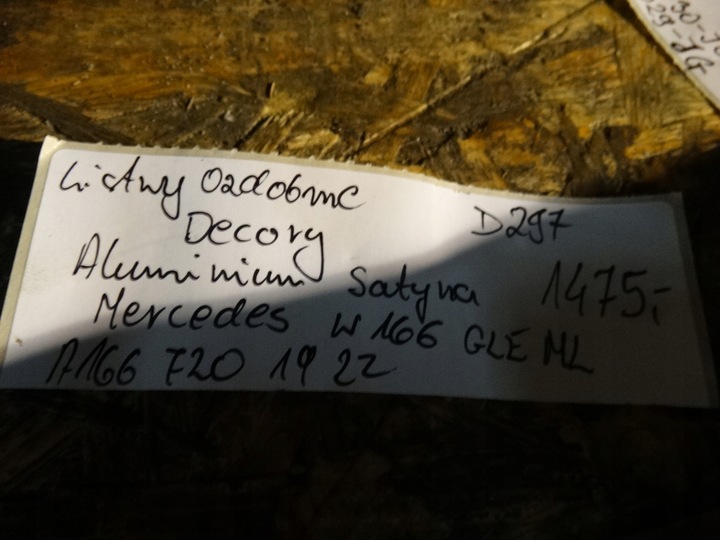 Listwy Ozdobne
Decory D297
Aluminium Satyna 1475,-
Mercedes W166 GLE ML
A166 720 19 22